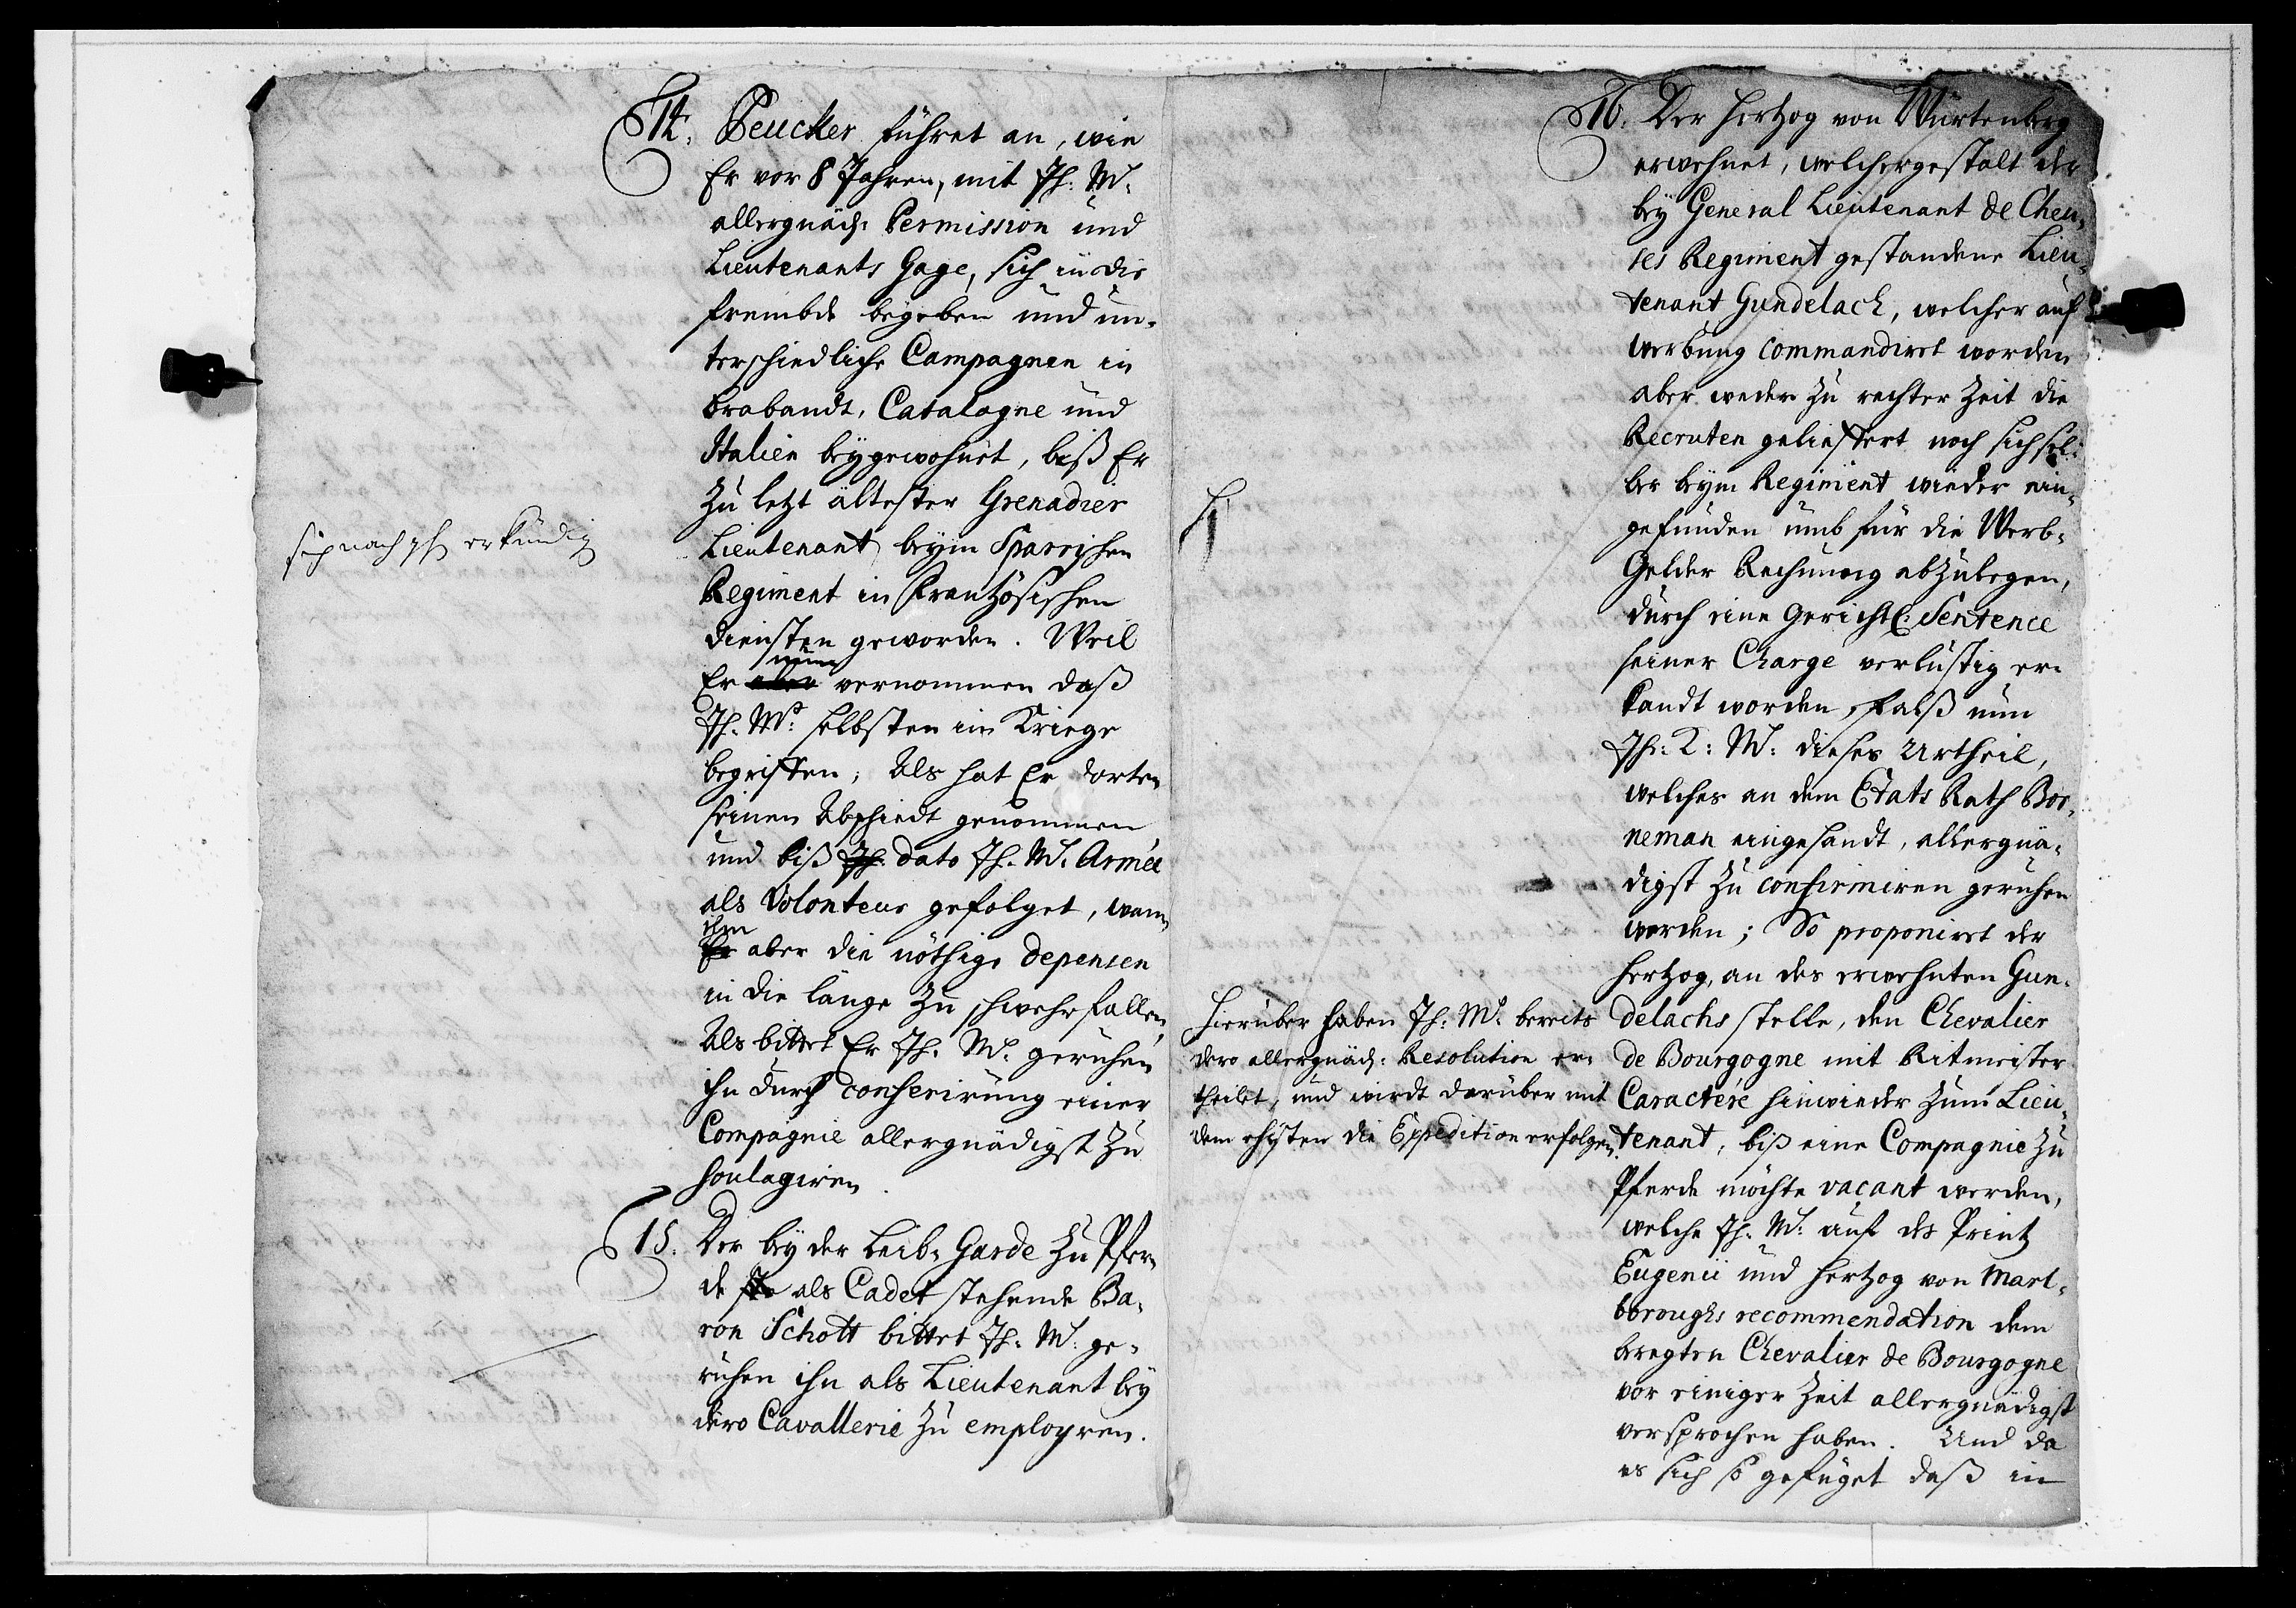 14. Beucker führet an, wie
Er vor 8 Jahren, mit Jh: M:
allergnäd: Permission und
Lieutenants Gage, sich in die
frembde begeben und un¬
terschiedliche Campagnen in
Brabandt, Catalogne und
Italien beygewohnt, biß Er
zu letzt ältester Grenadier
Lieutenant beym Sparrischen
Regiment in Frantzösischen
Diensten geworden. Weil
nun
Er aber vernommen daß
Jh. Mt: selbsten im Kriege
begriffen; Als hat Er dorten
seinen Abschiedt genommen
und biß Jh. dato Jh. M. Armée
als Volonteur gefolget, wann
ihm
Er aber die nöthige depensen
in die länge zu schwehr fallen,
Als bittet Er Jh. M. geruhen
ihn durch conferirung einer
Compagnie allergnädigst zu
soulagiren.
15. Der bey der Leib-Garde zu Pfer¬
de als Cadet stehende Ba¬
ron Schott bittet Jh: M: ge¬
ruhen ihn als Lieutenant bey
dero Cavallerie zu employren.
sich nach erkündig
16. Der Hertzog von Würtenberg
erwehnet, welchergestalt der
bey General Lieutenant de Cheu¬
ses Regiment gestandene Lieu¬
tenant Gundelach, welcher auf
Werbung commandiret worden
aber weder zu rechter Zeit die
Recruten geliefert noch sich sel¬
ber beym Regiment wieder ein¬
gefunden umb für die Werb¬
Gelder Rechnung abzulegen,
durch eine Gerichtl: Sentence
seiner Charge verlustig er¬
kandt worden, Falß nun
Jh: K: M: dieses Urtheil,
welches an dem Etats Rath Bor¬
neman eingesandt, allergnä¬
digst zu confirmiren geruhen
werden; So proponiret der
Hertzog, an des erwehnten Gun¬
delachs stelle, den Chevalier
de Bourgogne mit Ritmeister
Caractere hinwieder zum Lieu¬
tenant, biß eine Compagnie zu
Pferde möchte vacant werden,
welche Jh. M: auf des Printz
Eugenii und Hertzog von Marl¬
boroughs recommendation dem
beregten Chevalier de Bourgogne
vor einiger Zeit allergnädigst
versprochen haben. Und da
es sich so gefüget daß in
Hierüber haben Jh: M: bereits
dero allergnäd: Resolution er¬
theilet, und wirdt darüber mit
dem ehisten die Expedition erfolgen.